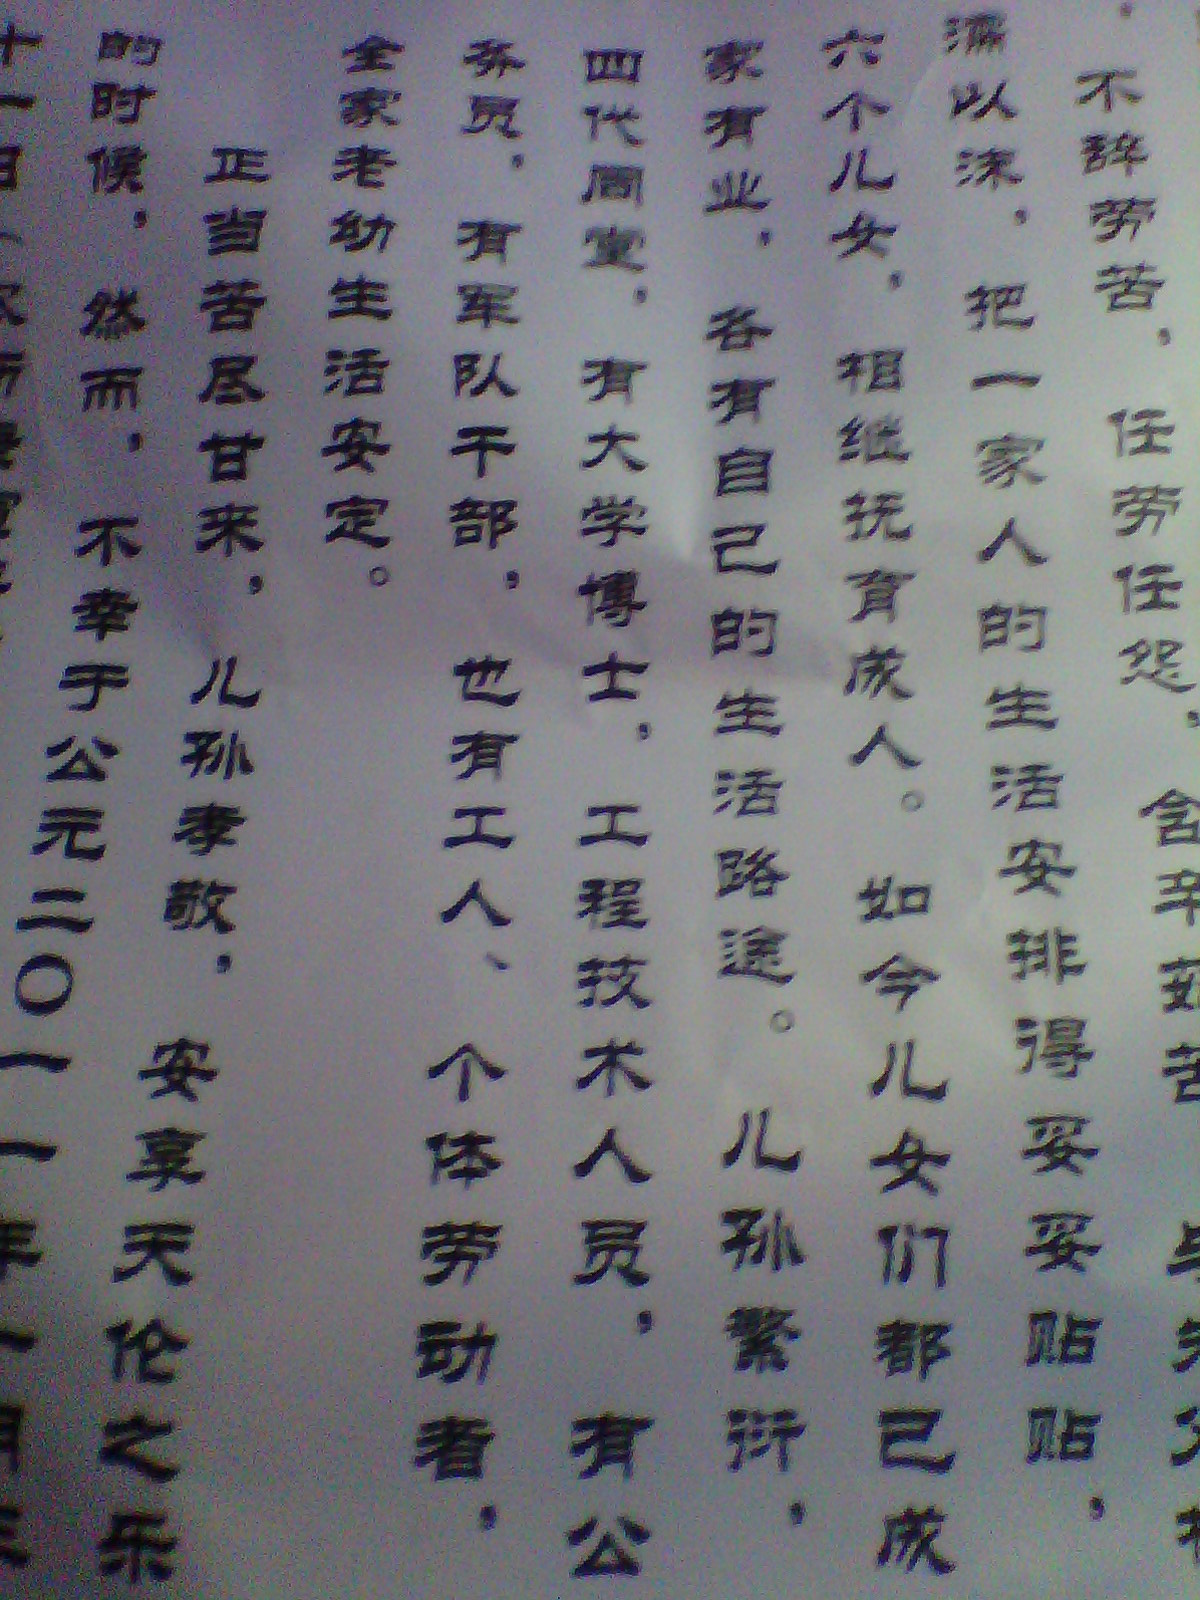 ，不辞劳苦，任劳任怨，含辛茹苦
濡以沫，把一家人的生活安排得妥妥贴贴，
六个儿女，相继抚育成人。如今儿女们都己成
家有业，各有自己的生活路途。儿孙繁衍，
四代同堂，有大学博士，工程技术人员，有公
务员，有军队干部，也有工人、个体劳动者，
全家老幼生活安定。
正当苦尽甘来，儿孙孝敬，安享天伦之乐
的时候，然而，不幸于公元二〇一一年一月
十一日（农历